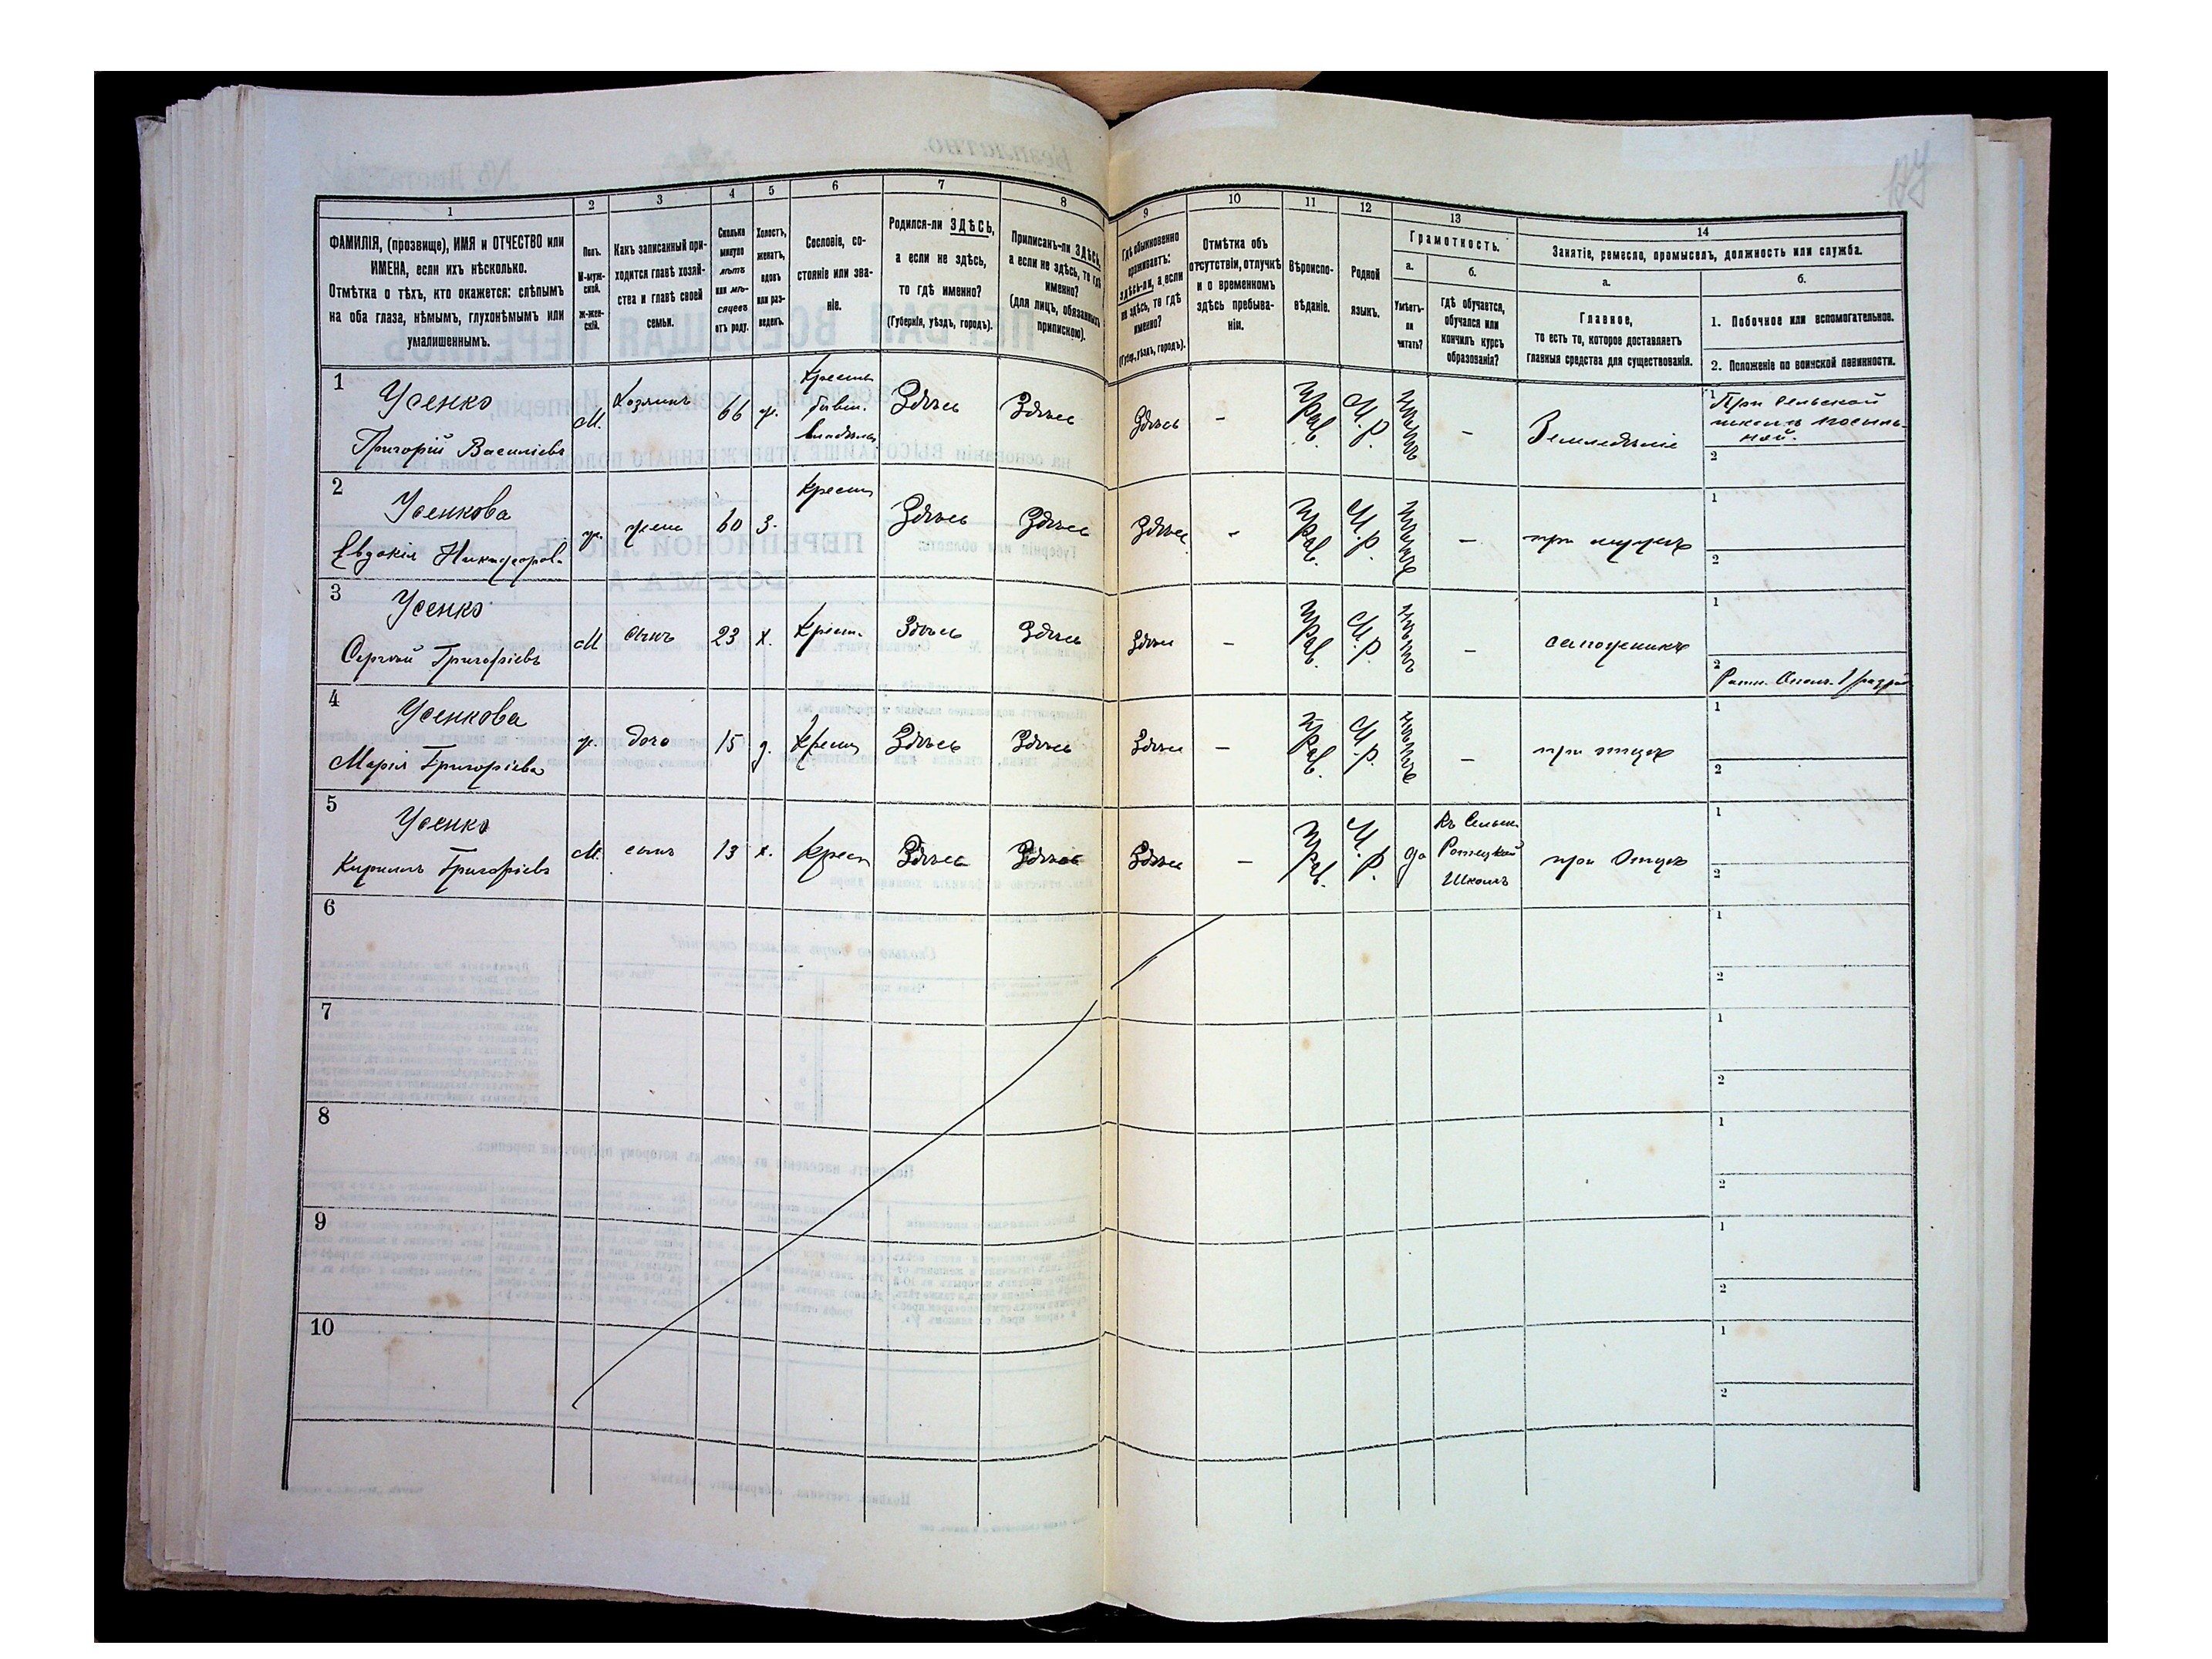 1 2 3 4 5 6 7 8 9 10 11 12 13 14
ФАМИЛІЯ, (прозвище), ИМЯ и ОТЧЕСТВО или
ИМЕНА, если ихъ нѣсколько.
Отмѣтка о тѣхъ, кто окажется: слѣпымъ
на оба глаза, нѣмымъ, глухонѣмымъ или
умалишеннымъ.
Полъ.
М-муж-
ской.
Ж-жен-
скій.
Какъ записанный при-
ходится главѣ хозяй-
ства и главѣ своей
семьи.
Сколько
минуло
лѣтъ
или мѣ-
сяцевъ
отъ роду.
Холостъ,
женатъ,
вдовъ
или раз-
веденъ.
Сословіе, со-
стояніе или зва-
ніе.
Родился-ли ЗДѢСЬ,
а если не здѣсь,
то гдѣ именно?
(Губернія, уѣздъ, городъ).
Приписанъ-ли ЗДѢСЬ,
а если не здѣсь, то гдѣ
именно?
(для лицъ, обязанныхъ
припискою).
Гдѣ обыкновенно
проживаетъ:
здѣсь-ли, а если
не здѣсь, то гдѣ
именно?
(Губер., уѣздъ, городъ).
Отмѣтка объ
отсутствіи, отлучкѣ
и о временномъ
здѣсь пребыва-
ніи.
Вѣроиспо-
вѣданіе.
Родной
языкъ.
Грамотность.
а.
Умѣетъ-
ли
читать?
б.
Гдѣ обучается,
обучался или
кончилъ курсъ
образованія?
Занятіе, ремесло, промыселъ, должность или служба.
а.
Главное,
то есть то, которое доставляетъ
главныя средства для существованія.
б.
1. Побочное или вспомогательное.
2. Положеніе по воинской повинности.
1
Усенко
Григорій Васильевъ
М.
Хозяинъ
66
ж.
Крестья
бывш.
владѣльч
Здѣсь
Здѣсь
Здѣсь
-
Прав.
М.Р.
-
Земледѣліе
1 При сельской
2
2
Усенкова
Евдокія Никифорова
ж.
жена
60
З.
Крестья
Здѣсь
Здѣсь
Здѣсь
-
Прав.
М.Р.
-
при мужѣ
1
2
3
Усенко
Сергѣй Григорьевъ
М
сынъ
23
х.
Крест.
Здѣсь
Здѣсь
Здѣсь
-
Прав.
М.Р.
-
сапожникъ
1
2
Ратн. Опол. 1 разряд
4
Усенкова
Марія Григорьева
ж.
дочь
15
д.
Крестья
Здѣсь
Здѣсь
Здѣсь
-
Прав.
М.Р.
-
при отцѣ
1
2
5
Усенко
Кирилъ Григорьевъ
М.
сынъ
13
х.
Крест
Здѣсь
Здѣсь
Здѣсь
-
Прав.
М.Р.
да
Въ Сельск.
Школѣ
при Отцѣ
1
2
6
1
2
7
1
2
8
1
2
9
1
2
10
1
2